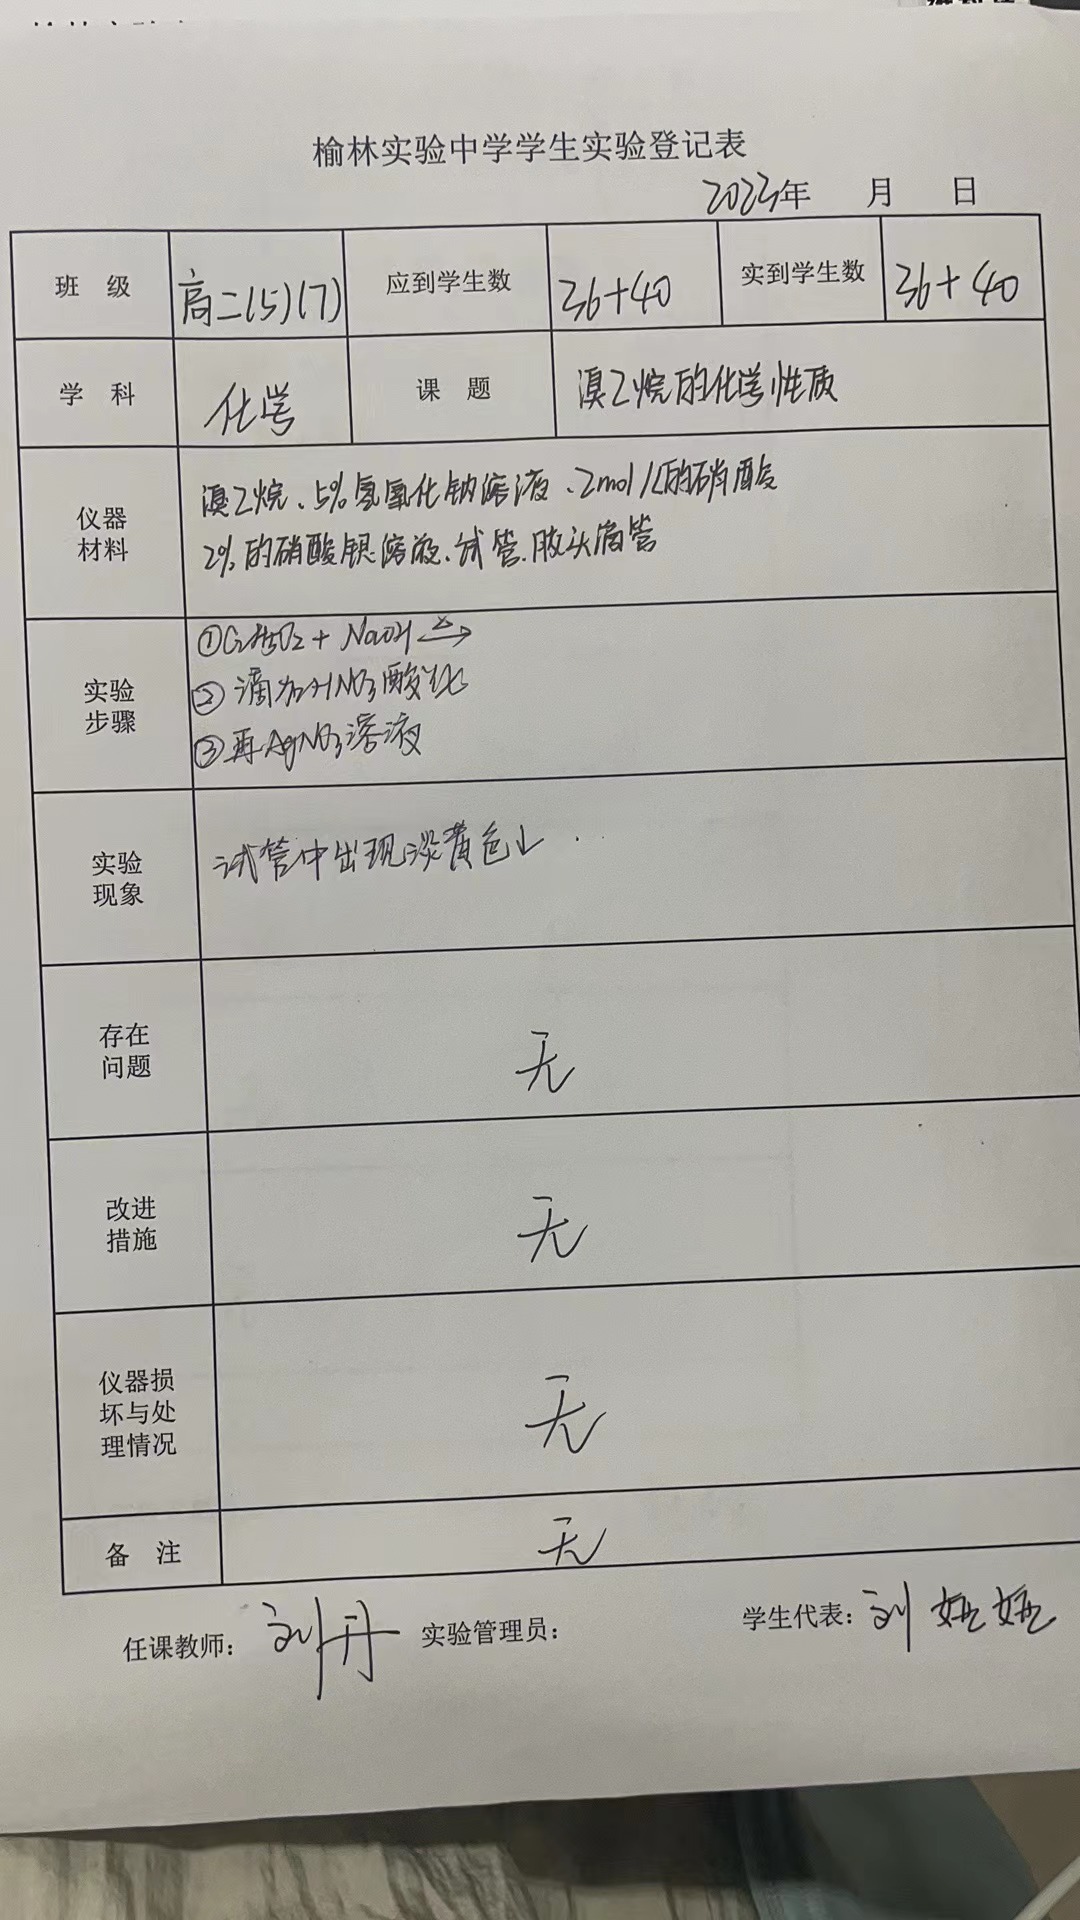 榆林实验中学学生实验登记表
2023年 月 日
班 级 高二(5)(7) 应到学生数 36+40 实到学生数 36+40
学 科 化学 课 题 溴乙烷的化学性质
仪器材料
溴乙烷、5%氢氧化钠溶液、2mol/L的硝酸
2%的硝酸银溶液、试管、胶头滴管
实验步骤
① + NaOH △→
②滴加HNO3酸化
③再AgNO3溶液
实验现象
试管中出现淡黄色↓
存在问题
无
改进措施
无
仪器损坏与处理情况
无
备 注 无
任课教师：刘丹 实验管理员： 学生代表：刘